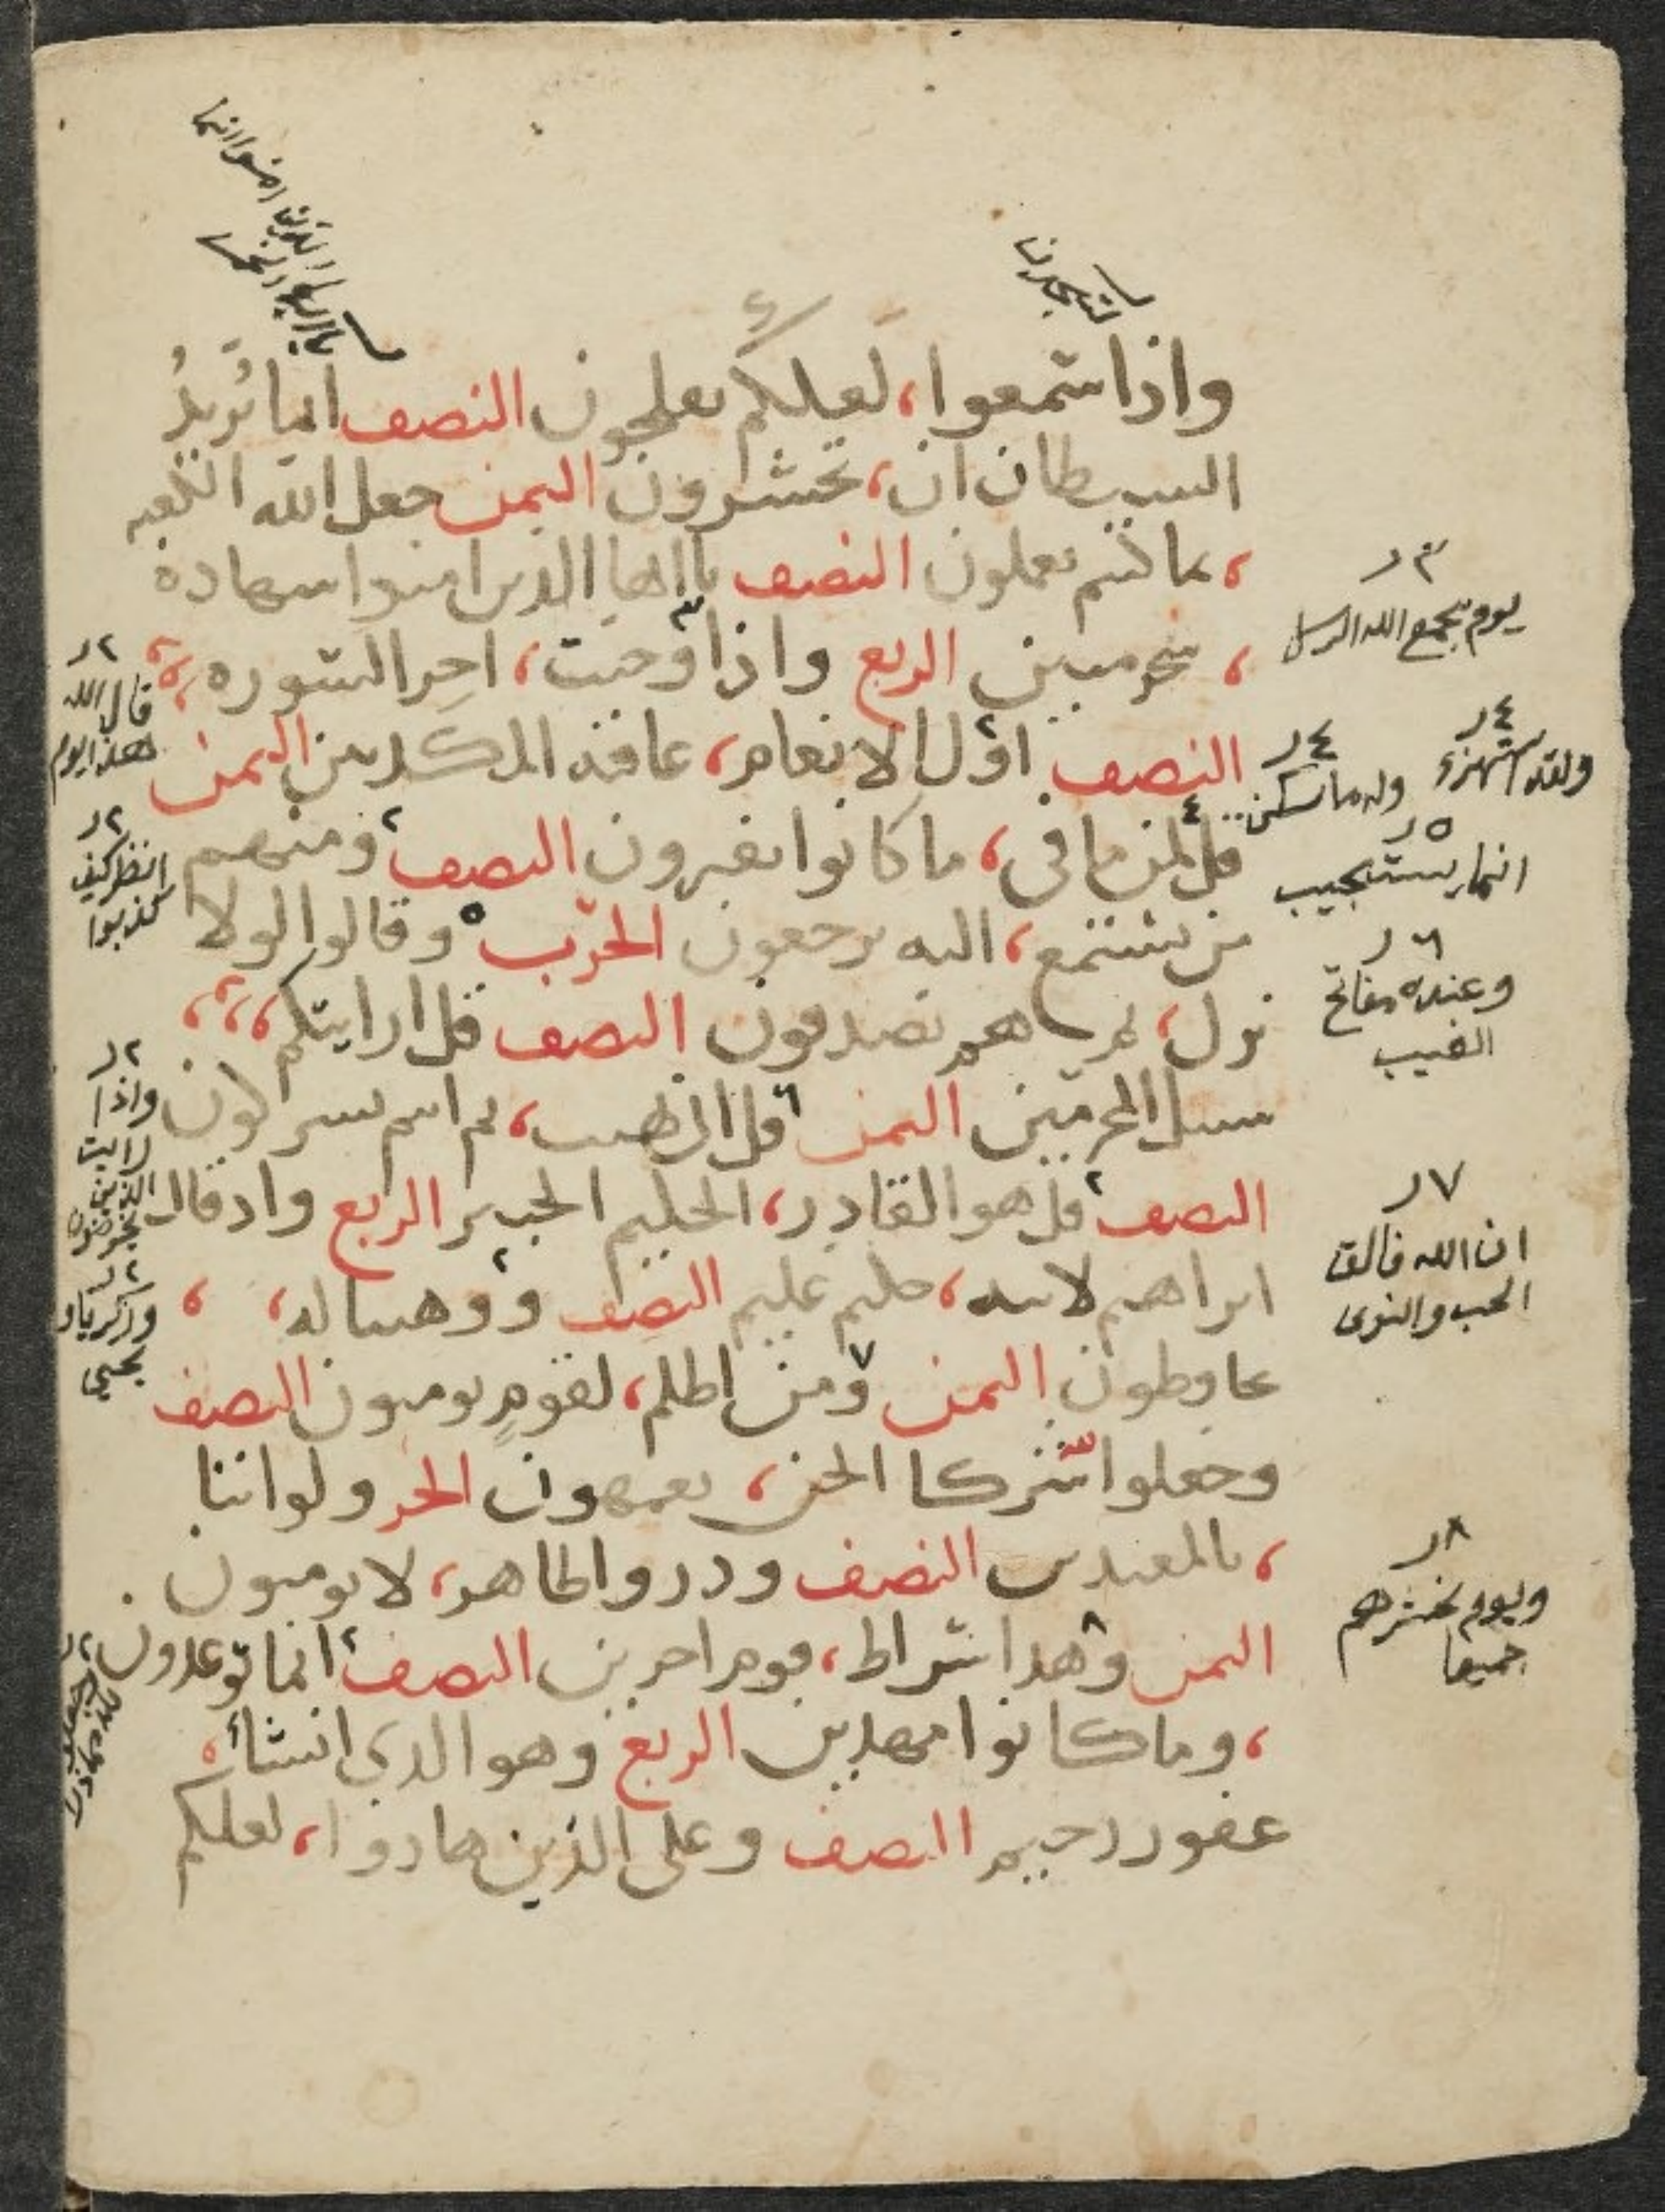 لتجدن
يا ايها الذين امنوا انما الخمر
واذا سمعوا، لعلكم تفلحون النصف انما تُريدُ
السيطان ان، تحشرون الثمن جعل الله الكعبه
، بما كنتم تعملون النصف يا ايها الذين امنوا سهادة
، سحر مبين الربع واذ اوحيت، اخر السوره
النصف اول الانعام، عاقبه المكذبين الثمن
قل لمن ما فى، ما كانوا يفترون النصف ومنهم
من يستمع، اليه يرجعون الحزب وقالوا لولا
نزل، ثم هم يصدفون النصف قل ارايتكم،
سبيل المجرمين الثمن قل انى نهيت، ثم انتم تشركون
النصف قل هو القادر، الحكيم الخبير الربع واذ قال
ابراهيم لابيه، حكيم عليم النصف ووهبنا له،
يحافظون الثمن ومن اظلم، لقومٍ يومنون النصف
وجعلوا شركا الجن، يعمهون الحز ولو اننا
، بالمعتدين النصف وذروا ظاهر، لا يومنون
الثمن وهذا صراط، قوم اخرين النصف انما توعدون
، وما كانوا مهتدين الربع وهو الذي انشأ
غفور رحيم النصف وعلى الذين هادوا، لعلكم
٣ر
يوم يجمع الله الرسل
٤ر
ولقد استهزء
٤ر
وله ما سكن
٥ر
انما يستجيب
٦ر
وعنده مفاتح
الغيب
٧ر
ان الله فالق
الحب والنوى
٨ر
ويوم نحشرهم
جميعا
٢ر
قال الله
هذا يوم
٢ر
انظر كيف
كذبوا
٢ر
واذا
رايت
الذين
يخوضون
٢ر
وزكريا و
يحيى